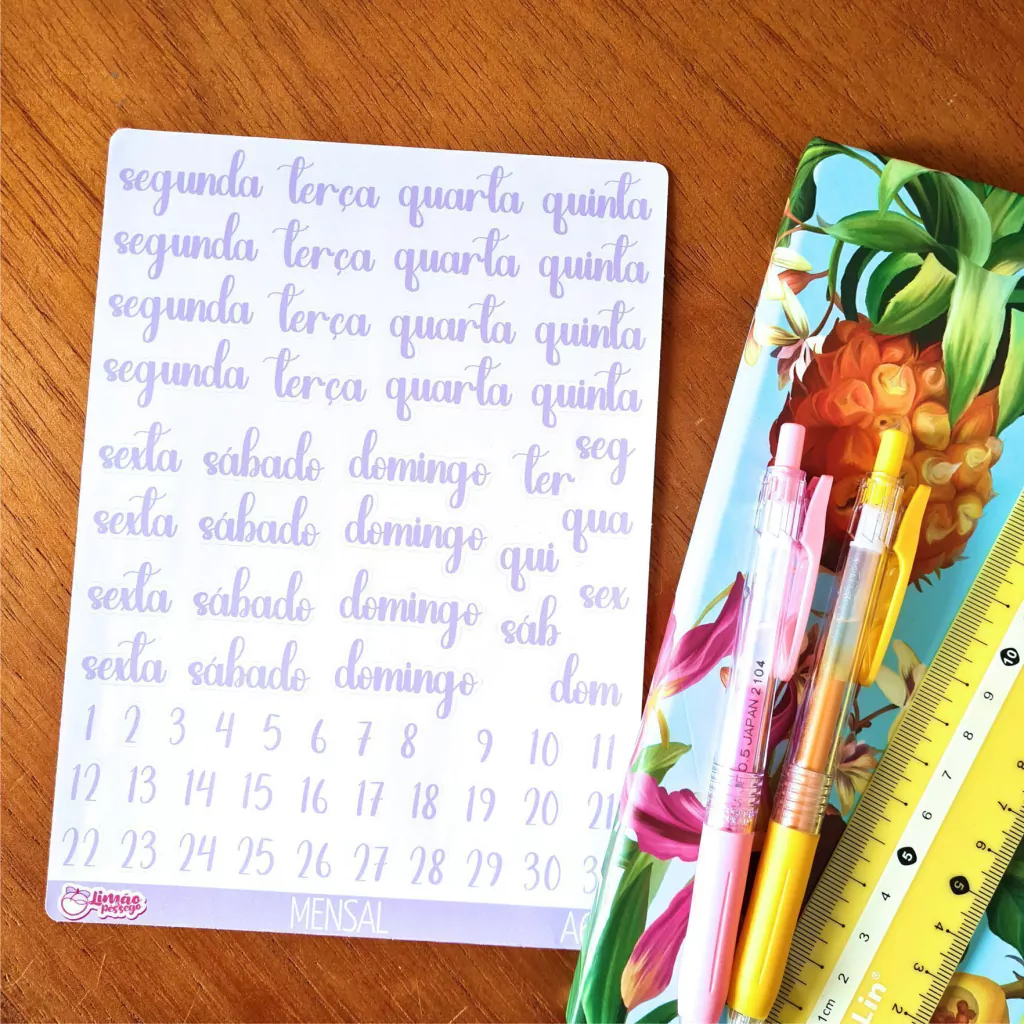 segunda terça quarta quinta
segunda terça quarta quinta
segunda terça quarta quinta
segunda terça quarta quinta
sexta sábado domingo ter seg
sexta sábado domingo qui qua
sexta sábado domingo sáb sex
sexta sábado domingo dom
1 2 3 4 5 6 7 8 9 10 11
12 13 14 15 16 17 18 19 20 21
22 23 24 25 26 27 28 29 30
Limão pêssego
MENSAL
0.5 JAPAN 2104
10 9 8 7 6 5 4 3 2 1cm
8 7 6 5 4 3 2
Lin®